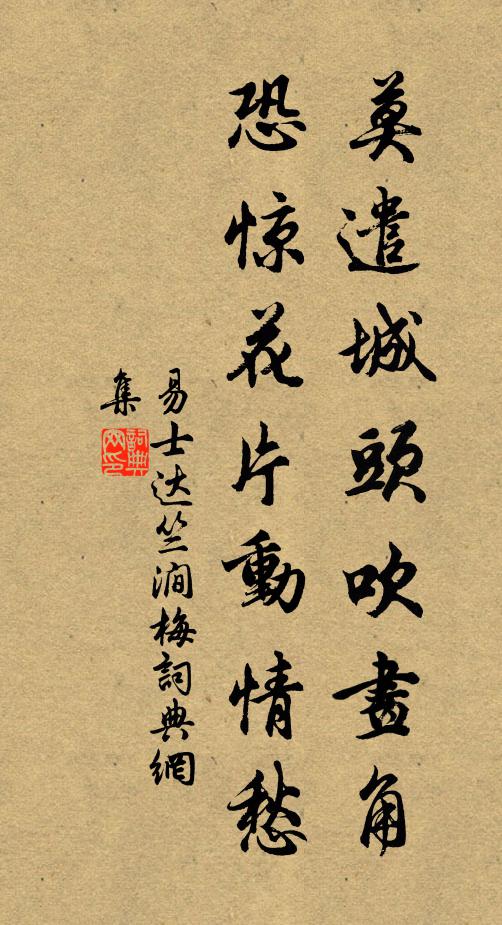 莫遣城頭吹畫角
恐惊花片動情愁
易士达竺澗梅詞典網
集
詞典網印